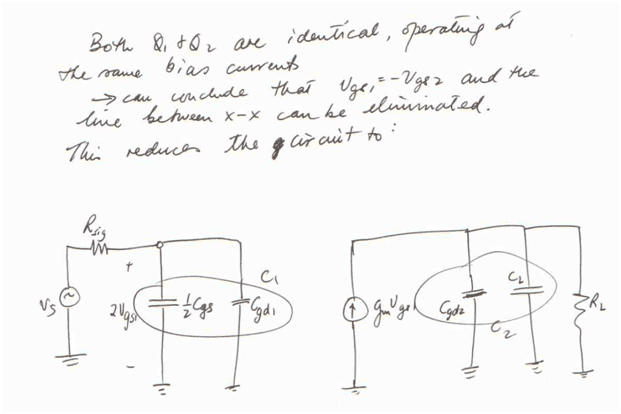 Both Q1 & Q2 are identical, operating at
the same bias currents
→ can conclude that Vgs1 = -Vgs2 and the
line between x-x can be eliminated.
This reduces the circuit to:
Rsig
+
C1
VS
2Vgs1
1/2 Cgs
Cgd1
-
gmVgs1
Cgd2
CL
C2
RL